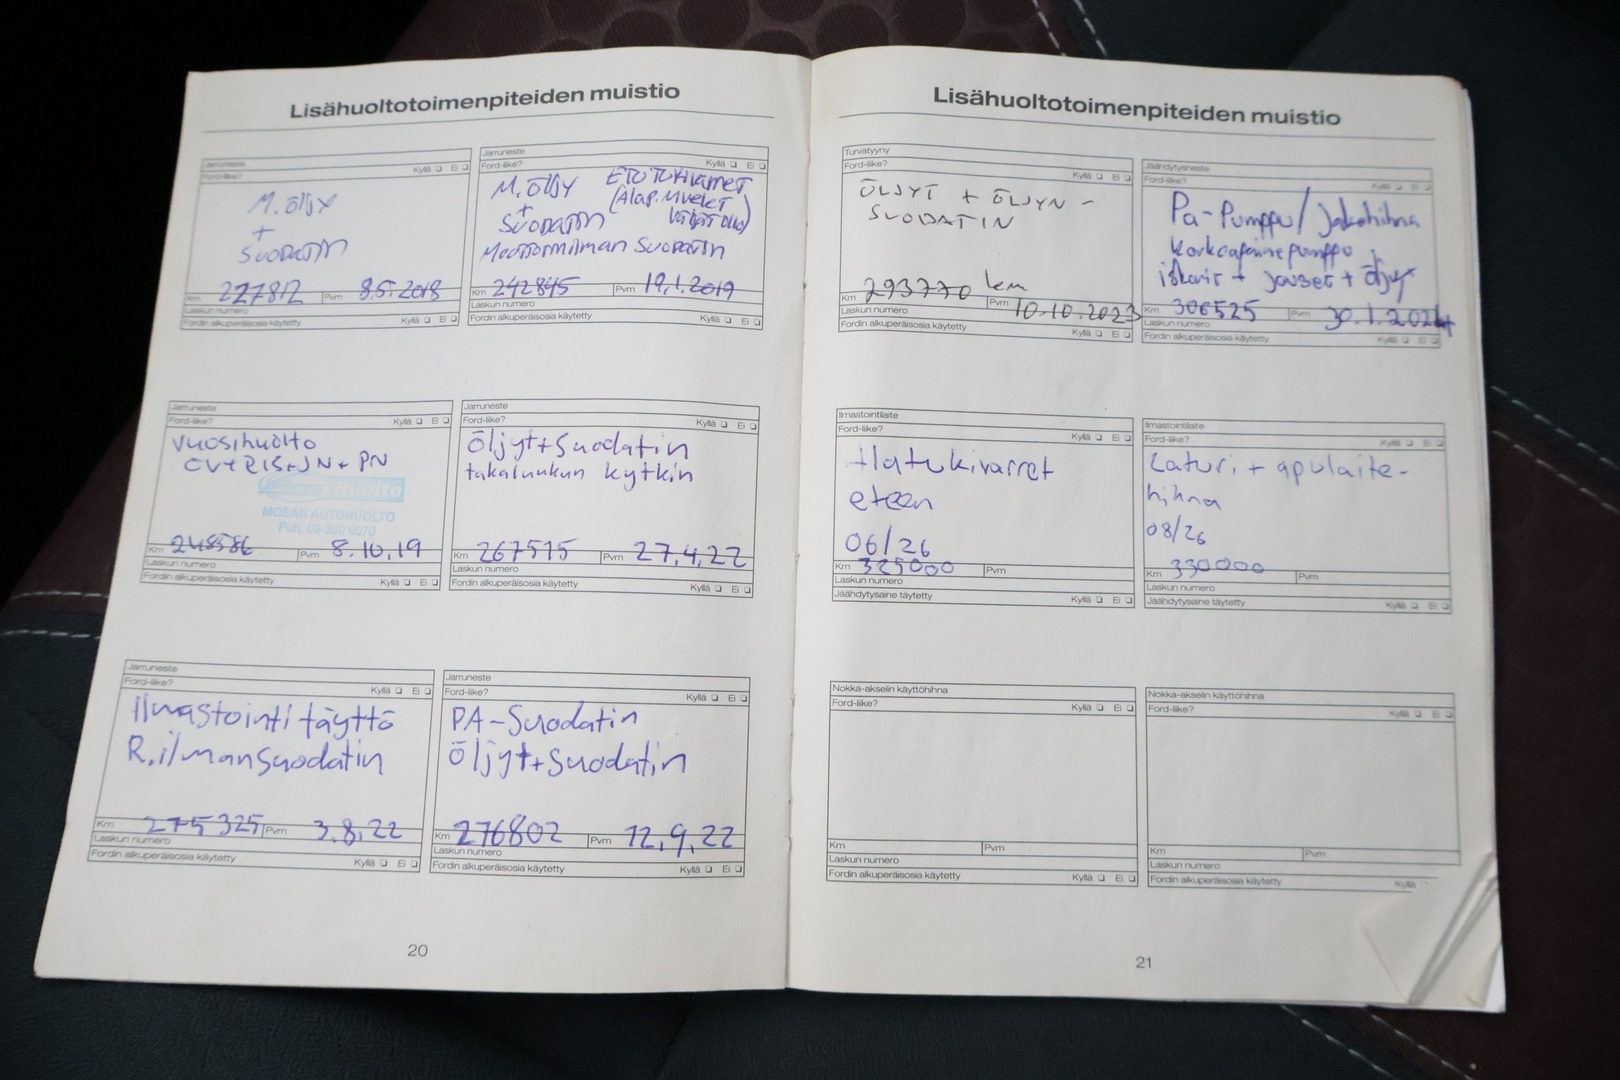 Lisähuoltotoimenpiteiden muistio
Jarruneste
Ford-liike? Kyllä ❏ Ei ❏
M. ÖLJY
+
SUODATIN
Km 227812 Pvm 8.5.2018
Laskun numero
Fordin alkuperäisosia käytetty Kyllä ❏ Ei ❏
Jarruneste
Ford-liike? Kyllä ❏ Ei ❏
M. ÖLJY ETUTUKIVARRET
+ (Alap. Nivelet
SUODATIN
Moottorinilman SUODATIN
Km 242845 Pvm 19.1.2019
Laskun numero
Fordin alkuperäisosia käytetty Kyllä ❏ Ei ❏
Jarruneste
Ford-liike? Kyllä ❏ Ei ❏
vuosihuolto
CV+RIS+JN+PN
MOSAN AUTOHUOLTO
Puh. 09-350 6070
Km 248586 Pvm 8.10.19
Laskun numero
Fordin alkuperäisosia käytetty Kyllä ❏ Ei ❏
Jarruneste
Ford-liike? Kyllä ❏ Ei ❏
Öljyt+Suodatin
takaluukun kytkin
Km 267515 Pvm 27,4,22
Laskun numero
Fordin alkuperäisosia käytetty Kyllä ❏ Ei ❏
Jarruneste
Ford-liike? Kyllä ❏ Ei ❏
ilmastointi täyttö
R.ilmansuodatin
Km 275325 Pvm 3.8,22
Laskun numero
Fordin alkuperäisosia käytetty Kyllä ❏ Ei ❏
Jarruneste
Ford-liike? Kyllä ❏ Ei ❏
PA-Suodatin
Öljyt+Suodatin
Km 276802 Pvm 12,9,22
Laskun numero
Fordin alkuperäisosia käytetty Kyllä ❏ Ei ❏
20
Lisähuoltotoimenpiteiden muistio
Turvatyyny
Ford-liike? Kyllä ❏ Ei ❏
ÖLJYT + ÖLJYN-
SUODATIN
Km 293770 km Pvm 10.10.2023
Laskun numero
Fordin alkuperäisosia käytetty Kyllä ❏ Ei ❏
Jäähdytysneste
Ford-liike? Kyllä ❏ Ei ❏
Pa-Pumppu/Jakohihna
Korkeapainepumppu
iskarit + jouset + öljyt
Km 306525 Pvm 30.1.2024
Laskun numero
Fordin alkuperäisosia käytetty Kyllä ❏ Ei ❏
Ilmastointilaite
Ford-liike? Kyllä ❏ Ei ❏
Alatukivarret
eteen
06/26
Km 325000 Pvm
Laskun numero
Jäähdytysaine täytetty Kyllä ❏ Ei ❏
Ilmastointilaite
Ford-liike? Kyllä ❏ Ei ❏
Laturi + apulaite-
hihna
08/26
Km 330000 Pvm
Laskun numero
Jäähdytysaine täytetty Kyllä ❏ Ei ❏
Nokka-akselin käyttöhihna
Ford-liike? Kyllä ❏ Ei ❏
Km Pvm
Laskun numero
Fordin alkuperäisosia käytetty Kyllä ❏ Ei ❏
Nokka-akselin käyttöhihna
Ford-liike? Kyllä ❏ Ei ❏
Km Pvm
Laskun numero
Fordin alkuperäisosia käytetty Kyllä
21